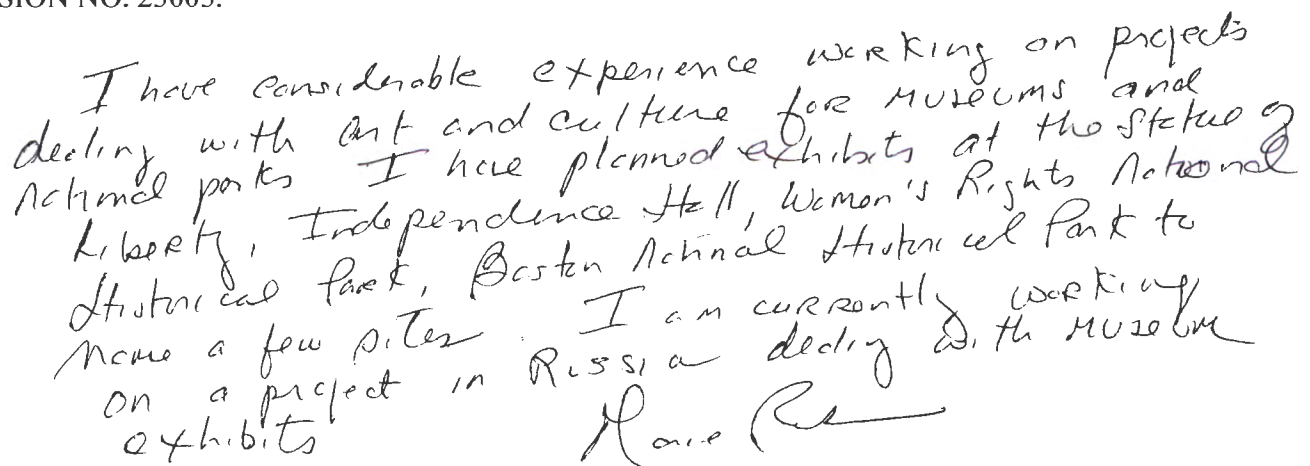 SION NO. 23003.
I have considerable experience working on projects
dealing with art and culture for museums and
national parks I have planned exhibits at the Statue of
Liberty, Independence Hall, Women's Rights National
Historical Park, Boston National Historical Park to
name a few sites. I am currently working
on a project in Russia dealing with museum
exhibits